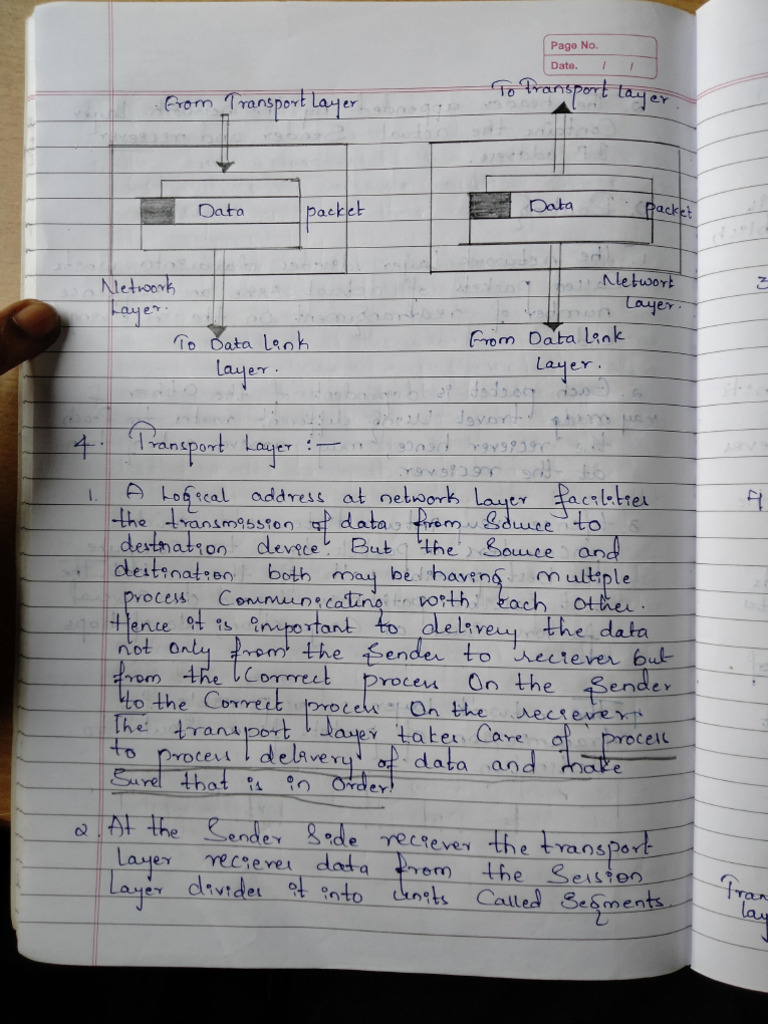 Page No.
Date. / /
From Transport Layer
To Transport Layer.
Data packet
Data packet
Network
Layer.
Networt
Layer.
To Data Link
Layer.
From Data Link
Layer.
4. Transport Layer :-
1. A Logical address at network Layer facilities
the transmission of data from Source to
destination device. But the Source and
destination both may be having multiple
process Communicating with each other.
Hence it is important to delivery the data
not only from the Sender to reciever but
from the Correct process On the Sender
to the Correct process On the reciever.
The transport layer takes Care of process
to process delivery of data and make
Sure that is in order
2. At the Sender Side reciever the transport
Layer reciever data from the Session
Layer divides it into units Called Segments.
3
4
Tran
lay